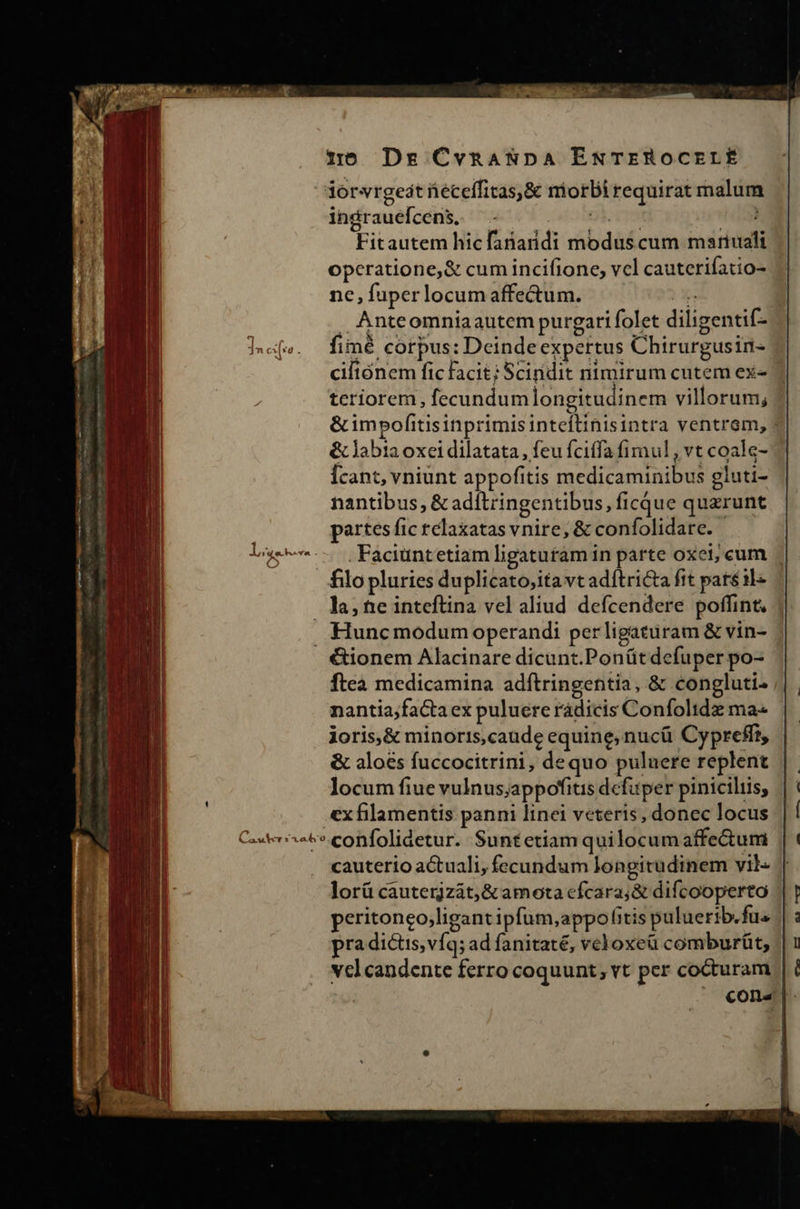 110 DE CVRANDA ENTEROCELE
iorvrgeat neceſſitas, & morbi requirat malum
ingraueſcens.
Fit autem hic ſanandi modus cum manuali
operatione, & cum inciſione, vel cauteriſatio-
ne, ſuper locum affectum.
Ante omnia autem purgari ſolet diligentiſ-
Inciſio.
ſimé corpus: Deinde expertus Chirurgus in-
ciſionem ſic facit; Scindit nimirum cutem ex-
teriorem, ſecundum longitudinem villorum;
& impoſitis inprimis inteſtinis intra ventrem,
& labia oxei dilatata, ſeu ſciſſa ſimul, vt coale-
ſcant, vniunt appoſitis medicaminibus gluti-
nantibus, & adſtringentibus, ſicque quærunt
partes ſic relaxatas vnire, & conſolidare.
Ligatura
Faciunt etiam ligaturam in parte oxei, cum
filo pluries duplicato, ita vt adſtricta ſit pars il-
la, ne inteſtina vel aliud deſcendere poſſint.
Hunc modum operandi per ligaturam & vin-
ctionem Alacinare dicunt. Ponũt deſuper po-
ſtea medicamina adſtringentia, & congluti-
nantia, facta ex puluere radicis Conſolidæ ma-
ioris, & minoris, caudę equinę, nucũ Cypreſſi,
& aloës ſuccocitrini, de quo puluere replent
locum ſiue vulnus, appoſitis deſuper piniciliis,
ex filamentis panni linei veteris, donec locus
Cauterisatio
conſolidetur. Sunt etiam qui locum affectum
cauterio actuali, ſecundum longitudinem vil-
lorũ cauterizãt, & amota eſcara, & diſcooperto
peritonęo, ligant ipſum, appoſitis puluerib. ſu-
pra dictis, vſq; ad ſanitatẽ, vel oxeũ comburũt,
vel candente ferro coquunt, vt per cocturam
con-